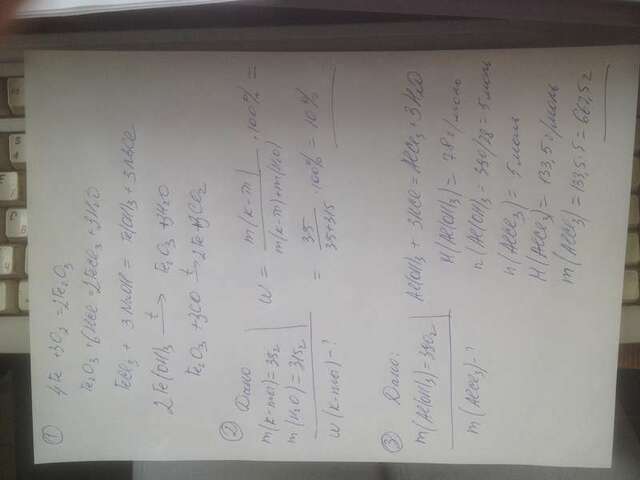 1
4Fe + 3O₂ = 2Fe₂O₃
Fe₂O₃ + 6HCl = 2FeCl₃ + 3H₂O
FeCl₃ + 3NaOH = Fe(OH)₃ + 3NaCl
2Fe(OH)₃ →t Fe₂O₃ + 3H₂O
Fe₂O₃ + 3CO →t 2Fe + 3CO₂
2
Дано
m(к-ты) = 35г
m(H₂O) = 315г
w(к-ты) - ?
w = m(к-т) / m(к-т) + m(H₂O) · 100% =
= 35 / 35+315 · 100% = 10%
3
Дано:
m(Al(OH)₃) = 390г
m(AlCl₃) - ?
Al(OH)₃ + 3HCl = AlCl₃ + 3H₂O
M(Al(OH)₃) = 78 г/моль
n(Al(OH)₃ = 390/78 = 5 моль
n(AlCl₃) = 5 моль
M(AlCl₃) = 133,5 г/моль
m(AlCl₃) = 133,5 · 5 = 667,5 г